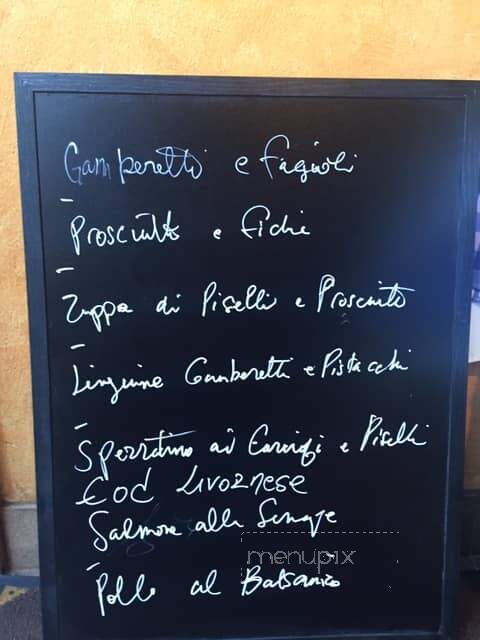 Gamberetti e fagioli
-
Prosciutto e fichi
-
Zuppa di Piselli e Prosciutto
-
Linguine Gamberetti e Pistacchi
-
ai e Piselli
Cod Livornese
Salmone alla Senape
-
Pollo al Balsamico
menupix